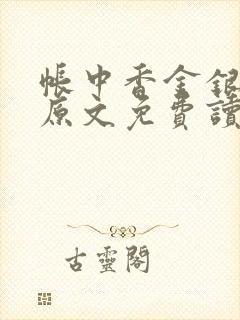 帳中香金銀
原文免費讀
古靈閣